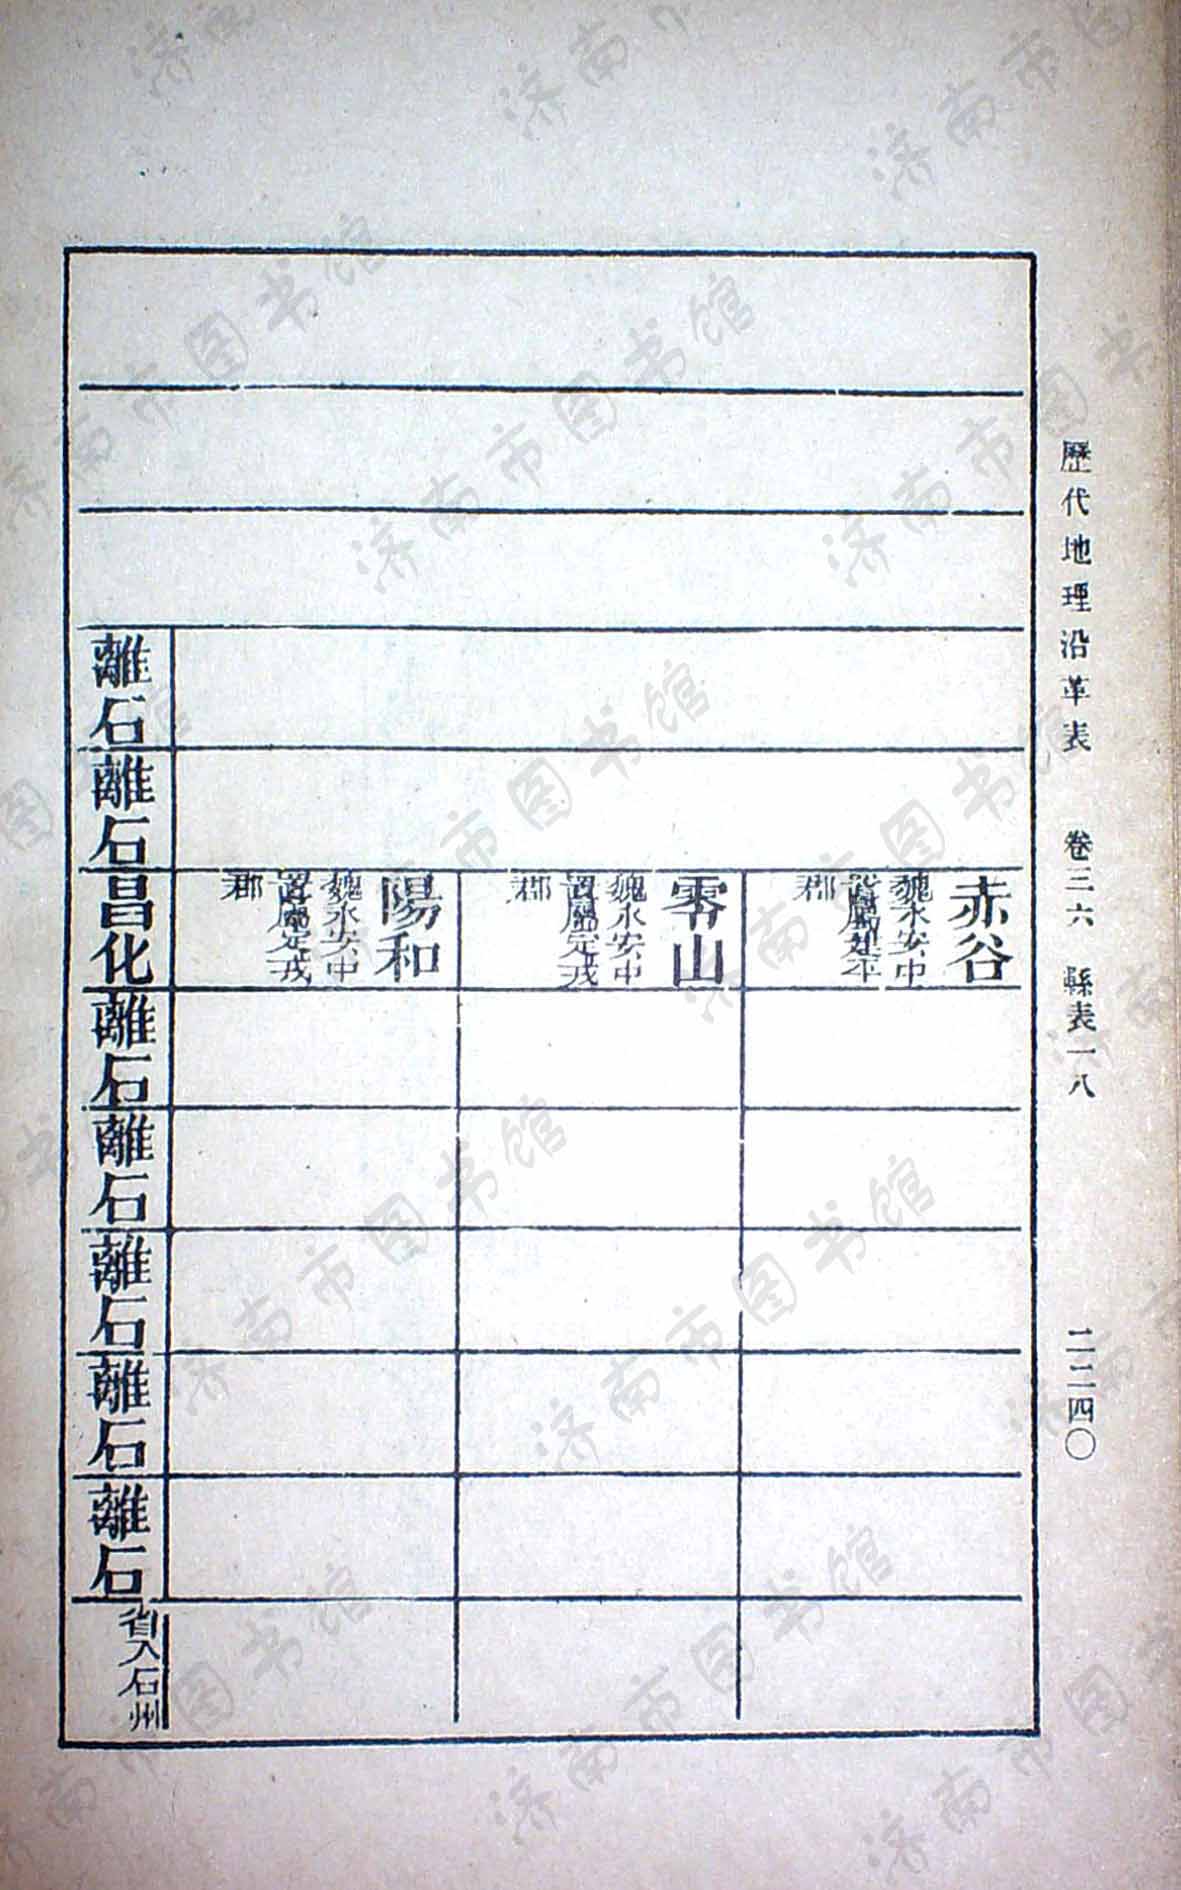 歷代地理沿革表 卷三六 縣表一八 二二四〇
赤谷
魏永安中
置屬建平
郡
零山
魏永安中
置屬定戎
郡
陽和
魏永安中
置屬定戎
郡
離石
離石
昌化
離石
離石
離石
離石
離石
省入石州
济南市图书馆